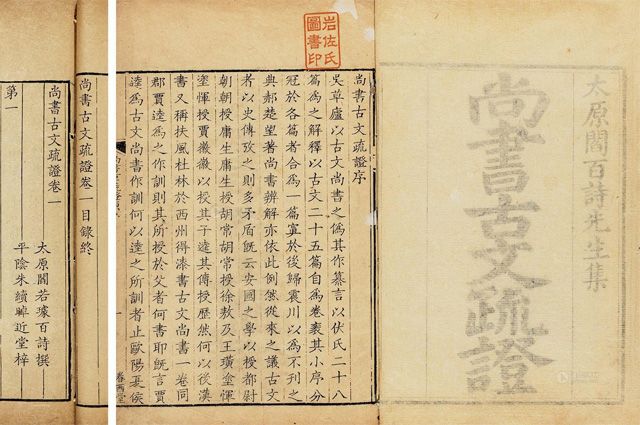 太原閻百詩先生集
尚書古文疏證
岩佐氏
圖書印
尚書古文疏證序
吳草廬以古文尚書之偽其作纂言以伏氏二十八
篇為之解釋以古文二十五篇自為卷裹其小序分
冠於各篇者合為一篇寘於後歸震川以為不刋之
典郝楚望著尚書辨解亦依此例然從來之議古文
者以史傳攷之則多矛盾旣云安國之學以授都尉
朝朝授庸生庸生授胡常胡常授徐敖及王璜塗惲
塗惲授賈徽徽以授其子逵其傳授歷然何以後漢
書又稱扶風杜林於西州得漆書古文尚書一卷同
郡賈逵為之作訓則其所授於父者何書耶旣言賈
逵為古文尚書作訓何以逵之所訓者止歐陽夏侯
眷西堂
尚書古文疏證卷一目錄終
尚書古文疏證卷一
太原閻若璩百詩撰
平陰朱續晫近堂梓
第一